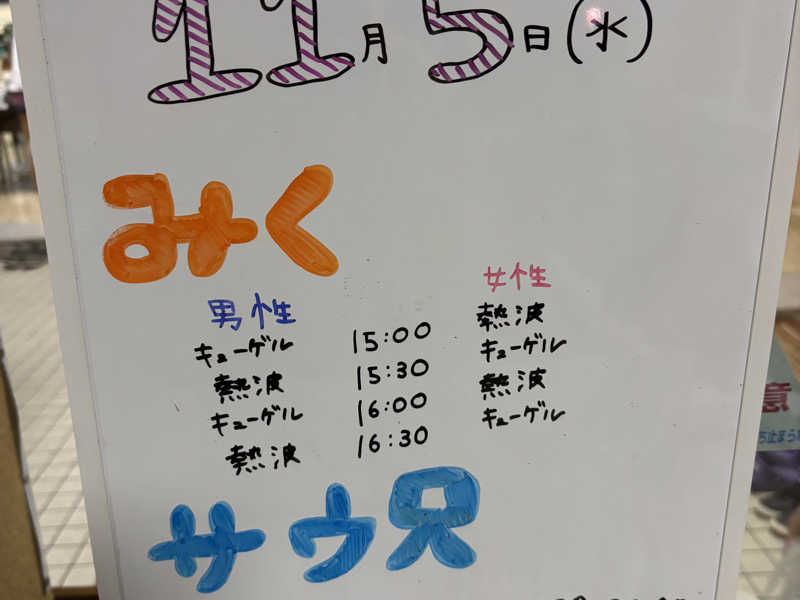 11月5日(水)
みく
男性 女性
キューゲル 15:00 熱波
熱波 15:30 キューゲル
キューゲル 16:00 熱波
熱波 16:30 キューゲル
サウ兄
意
ち止まら